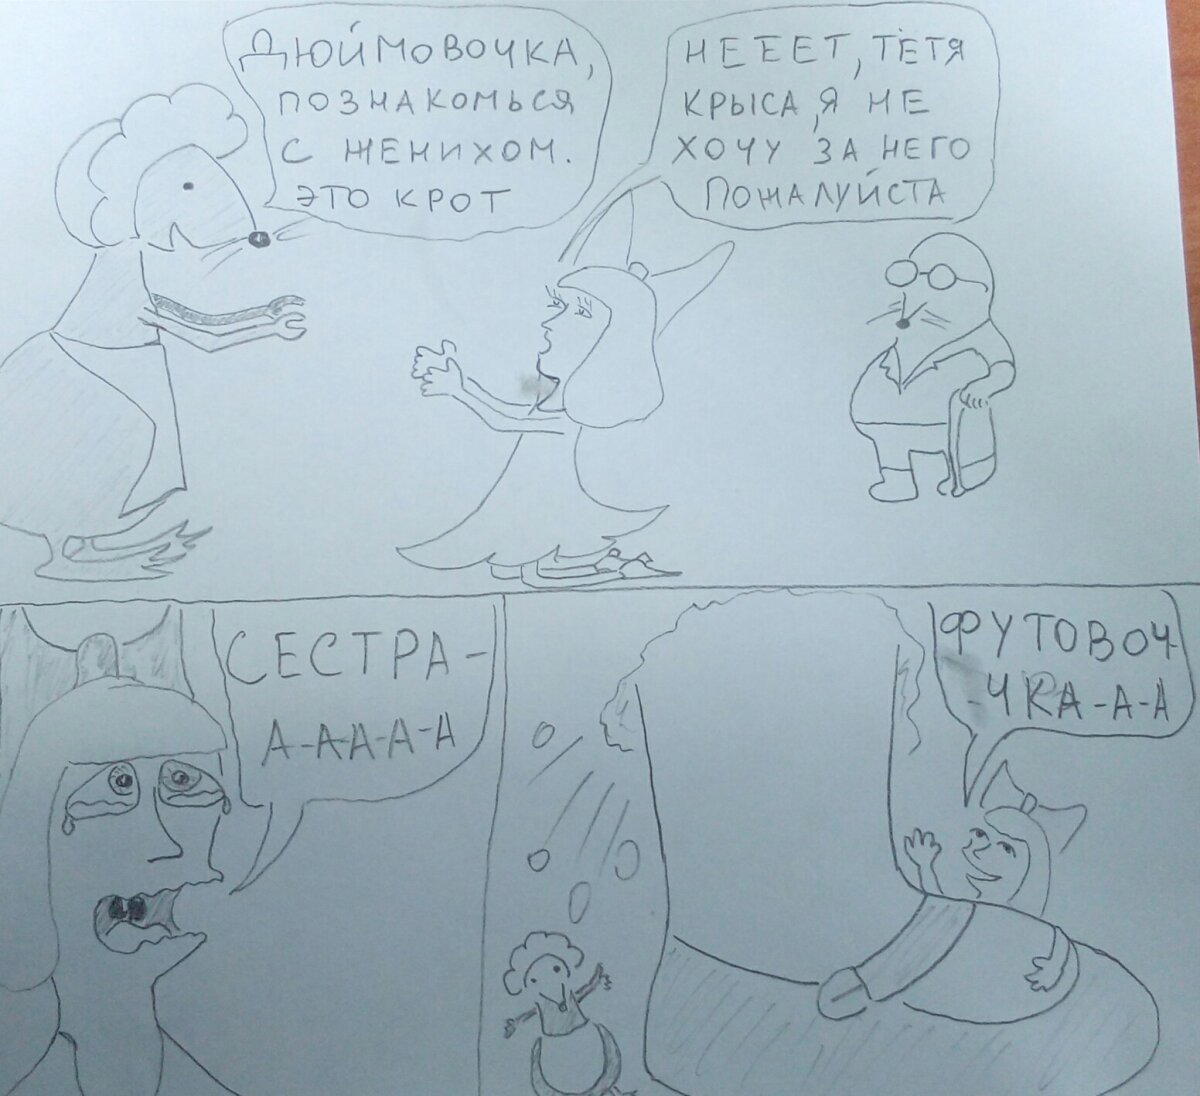 ДЮЙМОВОЧКА,
ПОЗНАКОМЬСЯ
С ЖЕНИХОМ.
ЭТО КРОТ
НЕЕЕТ, ТЁТЯ
КРЫСА, Я НЕ
ХОЧУ ЗА НЕГО
ПОЖАЛУЙСТА
СЕСТРА-
А-А-А-А-А
ФУТОВОЧ-
-ЧКА-А-А